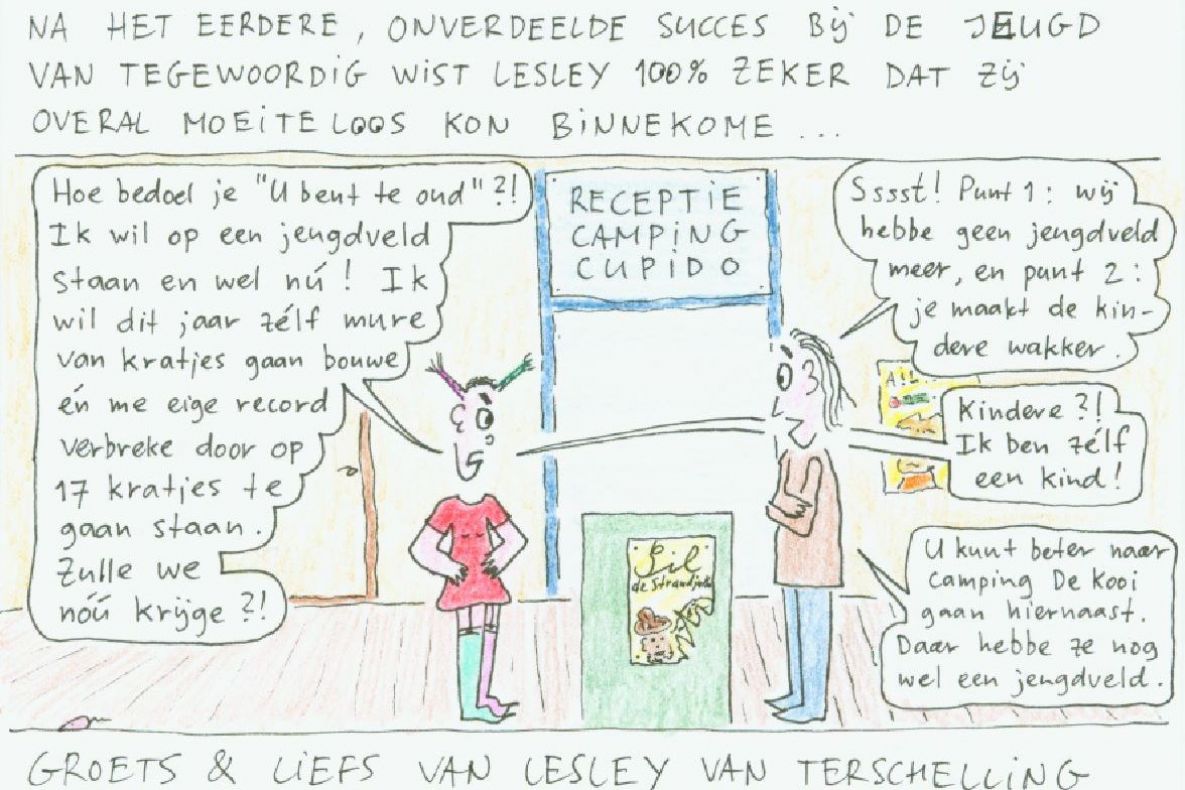 NA HET EERDERE, ONVERDEELDE SUCCES BIJ DE JEUGD
VAN TEGEWOORDIG WIST LESLEY 100% ZEKER DAT ZIJ
OVERAL MOEITELOOS KON BINNEKOME ...
Hoe bedoel je "U bent te oud"?!
Ik wil op een jeugdveld
staan en wel nú! Ik
wil dit jaar zélf mure
van kratjes gaan bouwe
én me eige record
verbreke door op
17 kratjes te
gaan staan.
Zulle we
nóú krijge?!
RECEPTIE
CAMPING
CUPIDO
Sssst! Punt 1: wij
hebbe geen jeugdveld
meer, en punt 2:
je maakt de kin-
dere wakker.
Kindere?!
Ik ben zélf
een kind!
U kunt beter naar
camping De Kooi
gaan hiernaast.
Daar hebbe ze nog
wel een jeugdveld.
de Strandjutter
GROETS & LIEFS VAN LESLEY VAN TERSCHELLING